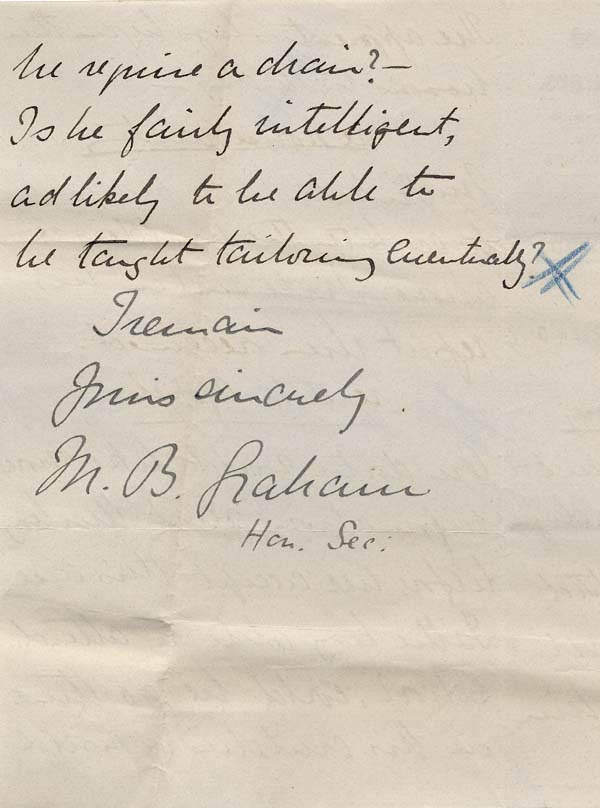 he require a chair? –
Is he fairly intelligent,
and likely to be able to
be taught tailoring eventually?
I remain
Yours sincerely.
M. B. Graham
Hon. Sec: